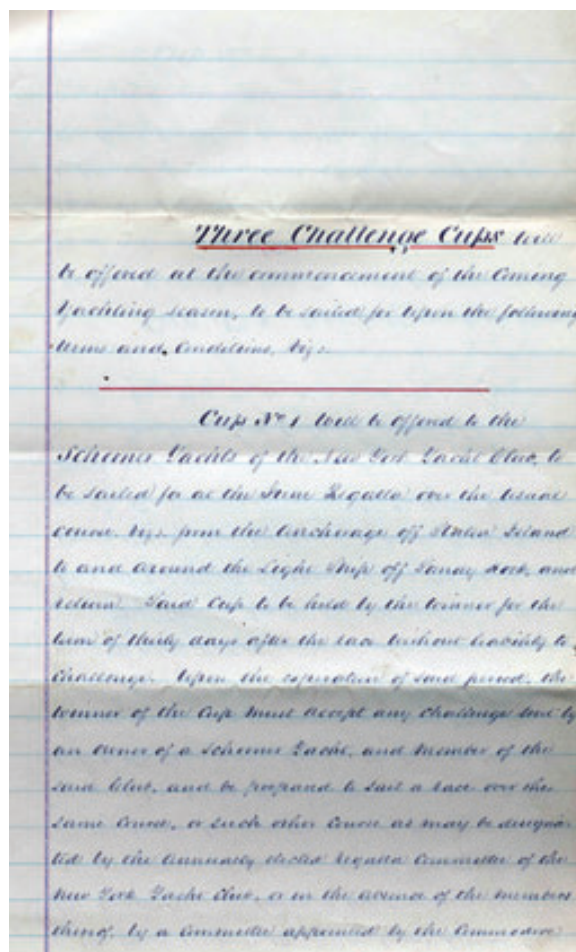 Three Challenge Cups will
be offered at the commencement of the Coming
Yachting season, to be sailed for upon the following
terms and Conditions, Viz:
Cup No 1 Will be offered to the
Schooner Yachts of the New York Yacht Club, to
be sailed for at the June Regatta over the usual
course, viz. from the Anchorage off Staten Island
to and around the Light Ship off Sandy Hook, and
return. Said Cup to be held by the winner for the
term of thirty days after the race without liability to
Challenge. Upon the expiration of said period, the
winner of the Cup must accept any challenge sent by
an owner of a Schooner Yacht, and member of the
said Club, and be prepared to sail a race over the
same Course, or such other Course as may be designa
ted by the Annually elected Regatta Committee of the
New York Yacht Club, or in the absence of the members
thereof, by a Committee appointed by the Commodore